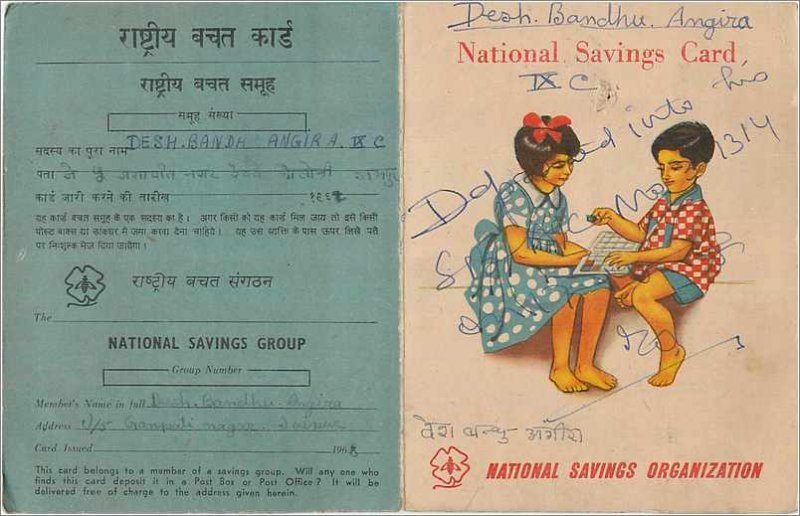 राष्ट्रीय बचत कार्ड
राष्ट्रीय बचत समूह
समूह संख्या
सदस्य का पूरा नाम DESH. BANDH. ANGIRA. IX C
पता
कार्ड जारी करने की तारीख १९६
यह कार्ड बचत समूह के एक सदस्य का है। अगर किसी को यह कार्ड मिल जाय तो इसे किसी
पोस्ट बाक्स या डाकघर में जमा करवा देना चाहिये। यह उस व्यक्ति के पास ऊपर लिखे पते
पर निःशुल्क भेज दिया जायेगा।
राष्ट्रीय बचत संगठन
The
NATIONAL SAVINGS GROUP
Group Number
Member's Name in full Desh. Bandhu. Angira
Address Ganpati nagar. Jaipur
Card Issued 1968
This card belongs to a member of a savings group. Will any one who
finds this card deposit it in a Post Box or Post Office? It will be
delivered free of charge to the address given herein.
Desh. Bandhu. Angira
National Savings Card
IX C
Deposited into his
1314
देश बन्धु अंगीरा
NATIONAL SAVINGS ORGANIZATION